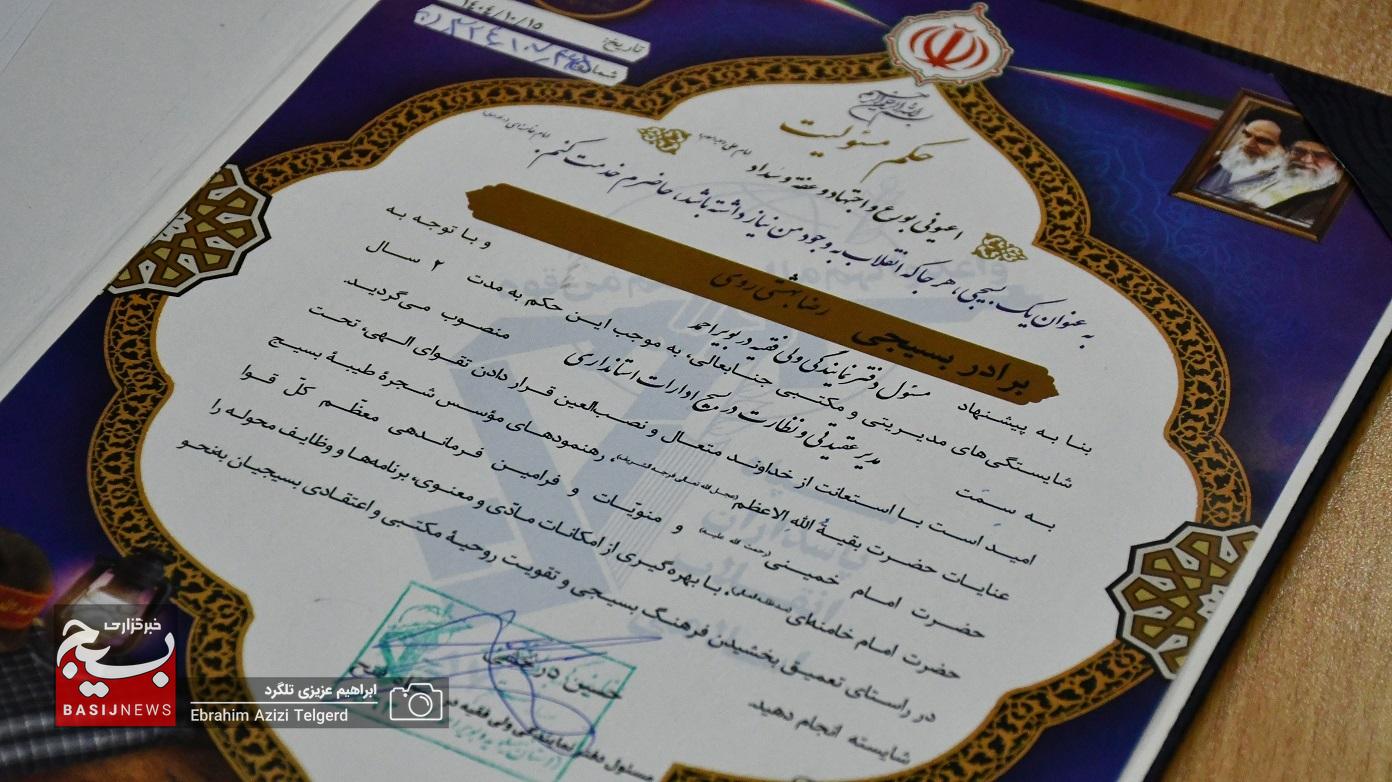 تاریخ: ۱۴۰۴/۱۰/۱۵
حکم مسئولیت
اعینونی بورع و اجتهاد و عفة و سداد
به عنوان یک بسیجی، هر جا که انقلاب به وجود من نیاز داشته باشد، حاضرم خدمت کنم.
برادر بسیجی رضا بهشتی روی
بنا به پیشنهاد مسئول دفتر نمایندگی ولی فقیه در بویراحمد و با توجه به
شایستگی‌های مدیریتی و مکتبی جنابعالی، به موجب این حکم به مدت ۲ سال
به سمت مدیر عقیدتی و نظارت در بسیج ادارات استانداری منصوب می‌گردید.
امید است با استعانت از خداوند متعال و نصب‌العین قرار دادن تقوای الهی، تحت
عنایات حضرت بقیةالله الاعظم، رهنمودهای مؤسس شجرهٔ طیبهٔ بسیج
حضرت امام خمینی (رحمت الله علیه) و منویات و فرامین فرماندهی معظّم کلّ قوا
حضرت امام خامنه‌ای، با بهره‌گیری از امکانات مادّی و معنوی، برنامه‌ها و وظایف محوله را
در راستای تعمیق بخشیدن فرهنگ بسیجی و تقویت روحیهٔ مکتبی و اعتقادی بسیجیان به‌نحو
شایسته انجام دهید.
حسین
مسئول دفتر نمایندگی ولی فقیه در
خبرگزاری
بسیج
BASIJNEWS
ابراهیم عزیزی تلگرد
Ebrahim Azizi Telgerd